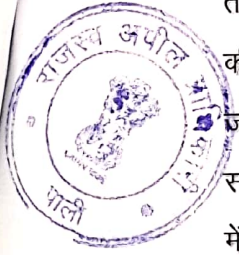 राजस्व अपील प्राधिकारी
पाली
त
क
ज
स
में